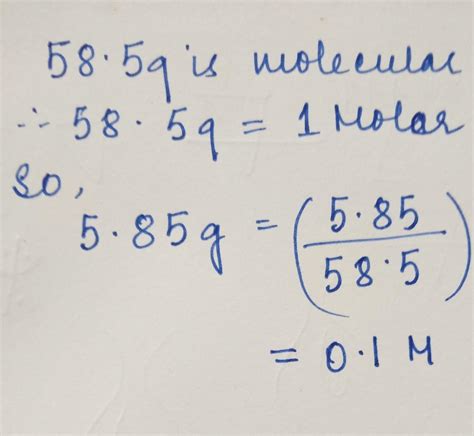 58.5g is molecular
∴ 58.5g = 1 Molar
So,
5.85g = (5.85/58.5)
= 0.1 M